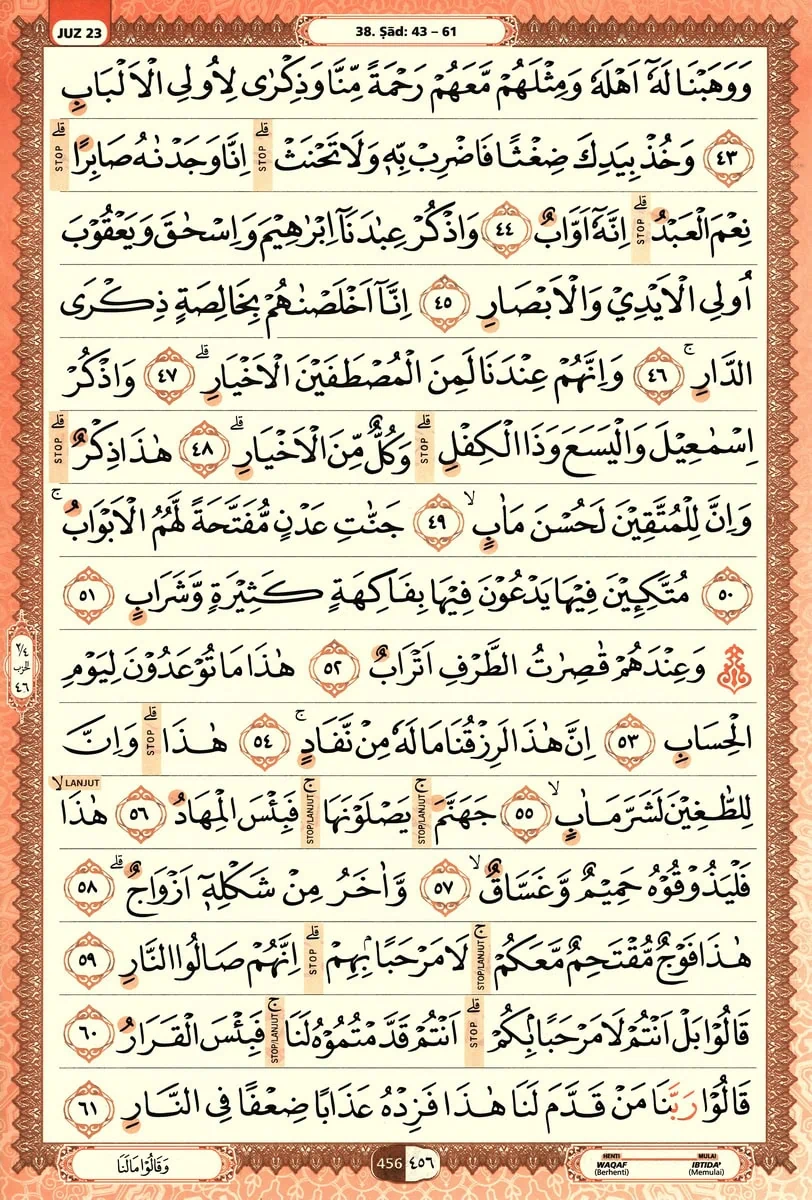 JUZ 23
38. Ṣād: 43 – 61
وَوَهَبْنَا لَهٗٓ اَهْلَهٗ وَمِثْلَهُمْ مَّعَهُمْ رَحْمَةً مِّنَّا وَذِكْرٰى لِاُولِى الْاَلْبَابِ
٤٣ وَخُذْ بِيَدِكَ ضِغْثًا فَاضْرِبْ بِّهٖ وَلَا تَحْنَثْ ۗ STOP اِنَّا وَجَدْنٰهُ صَابِرًا ۗ STOP
نِعْمَ الْعَبْدُ ۗ STOP اِنَّهٗٓ اَوَّابٌ ٤٤ وَاذْكُرْ عِبٰدَنَآ اِبْرٰهِيْمَ وَاِسْحٰقَ وَيَعْقُوْبَ
اُولِى الْاَيْدِيْ وَالْاَبْصَارِ ٤٥ اِنَّآ اَخْلَصْنٰهُمْ بِخَالِصَةٍ ذِكْرَى
الدَّارِ ۚ ٤٦ وَاِنَّهُمْ عِنْدَنَا لَمِنَ الْمُصْطَفَيْنَ الْاَخْيَارِ ۗ ٤٧ وَاذْكُرْ
اِسْمٰعِيْلَ وَالْيَسَعَ وَذَا الْكِفْلِ ۗ STOP وَكُلٌّ مِّنَ الْاَخْيَارِ ۗ ٤٨ هٰذَا ذِكْرٌ ۗ STOP
وَاِنَّ لِلْمُتَّقِيْنَ لَحُسْنَ مَاٰبٍ ۙ ٤٩ جَنّٰتِ عَدْنٍ مُّفَتَّحَةً لَّهُمُ الْاَبْوَابُ ۚ
٥٠ مُتَّكِـِٕيْنَ فِيْهَا يَدْعُوْنَ فِيْهَا بِفَاكِهَةٍ كَثِيْرَةٍ وَّشَرَابٍ ٥١
۞ وَعِنْدَهُمْ قٰصِرٰتُ الطَّرْفِ اَتْرَابٌ ٥٢ هٰذَا مَا تُوْعَدُوْنَ لِيَوْمِ
الْحِسَابِ ٥٣ اِنَّ هٰذَا لَرِزْقُنَا مَا لَهٗ مِنْ نَّفَادٍ ۚ ٥٤ هٰذَا ۗ STOP وَاِنَّ
لِلطّٰغِيْنَ لَشَرَّ مَاٰبٍ ۙ ٥٥ جَهَنَّمَ ۚ STOP/LANJUT يَصْلَوْنَهَا ۚ STOP/LANJUT فَبِئْسَ الْمِهَادُ ٥٦ هٰذَا ۙ LANJUT
فَلْيَذُوْقُوْهُ حَمِيْمٌ وَّغَسَّاقٌ ۙ ٥٧ وَّاٰخَرُ مِنْ شَكْلِهٖٓ اَزْوَاجٌ ۗ ٥٨
هٰذَا فَوْجٌ مُّقْتَحِمٌ مَّعَكُمْ ۚ STOP/LANJUT لَا مَرْحَبًا ۢ بِهِمْ ۗ STOP اِنَّهُمْ صَالُوا النَّارِ ٥٩
قَالُوْا بَلْ اَنْتُمْ لَا مَرْحَبًا ۢ بِكُمْ ۗ STOP اَنْتُمْ قَدَّمْتُمُوْهُ لَنَا ۚ STOP/LANJUT فَبِئْسَ الْقَرَارُ ٦٠
قَالُوْا رَبَّنَا مَنْ قَدَّمَ لَنَا هٰذَا فَزِدْهُ عَذَابًا ضِعْفًا فِى النَّارِ ٦١
٢/٤
الحزب
٤٦
وَقَالُوْا مَا لَنَا
456 ٤٥٦
HENTI
WAQAF
(Berhenti)
MULAI
IBTIDA'
(Memulai)